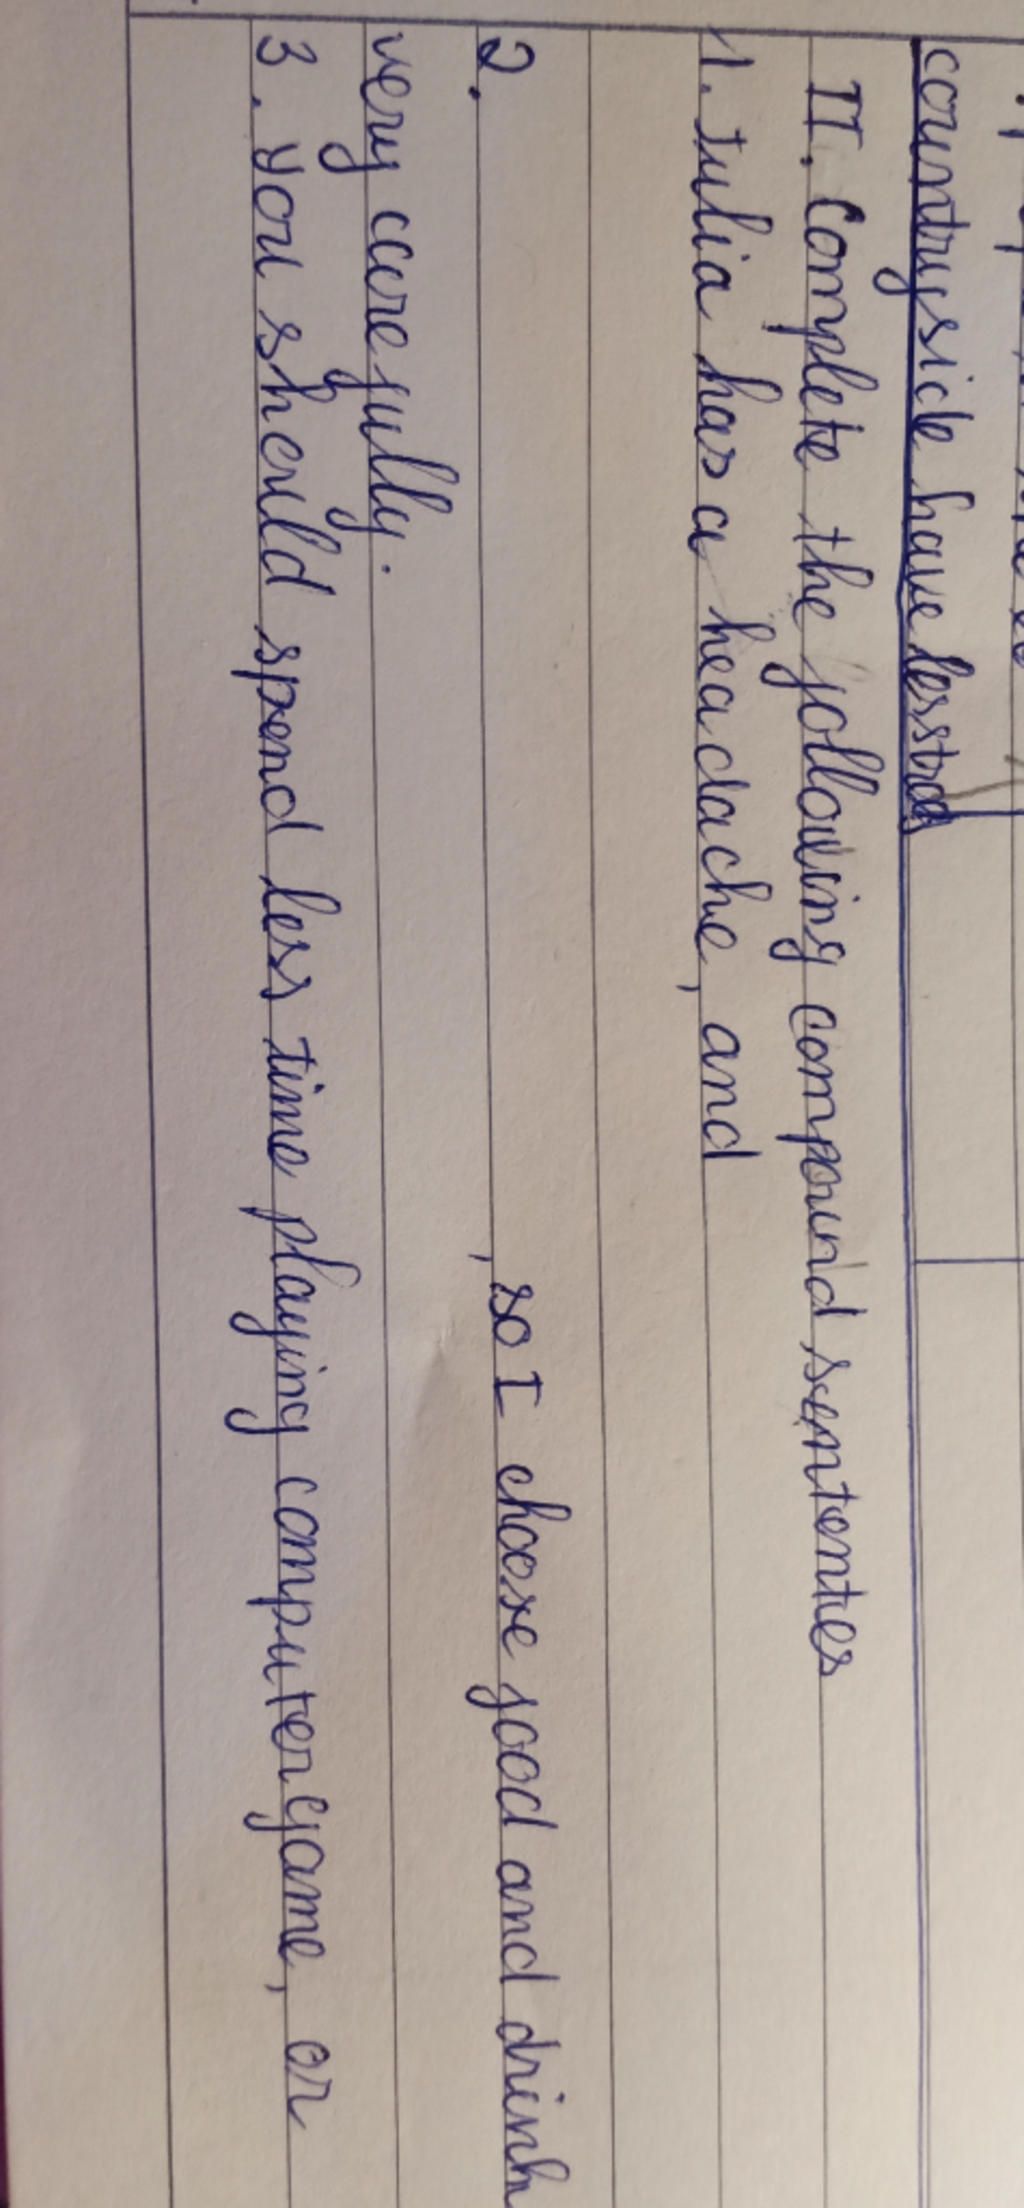 countryside have less
II. Complete the following compound sententies
1. Julia has a headache, and
2. , so I choose food and drink
very carefully.
3. you should spend less time playing computer game, or